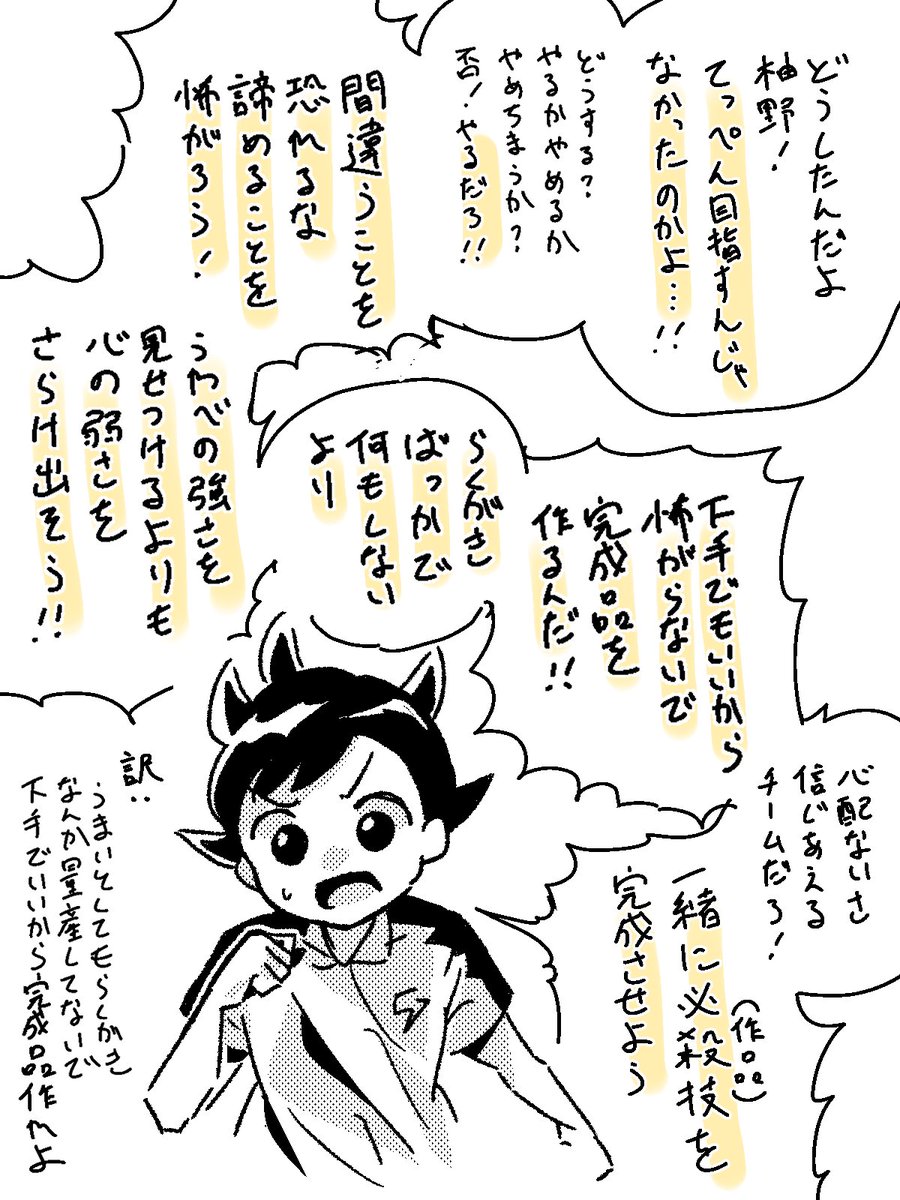 どうしたんだよ
柚野！
てっぺん目指すんじゃ
なかったのかよ…!!
どうする？
やるかやめるか
やめちまうか？
否！やるだろ!!
間違うことを
恐れるな
諦めることを
怖がろう！
うわべの強さを
見せつけるよりも
心の弱さを
さらけ出そう!!
らくがき
ばっかで
何もしない
より
下手でもいいから
怖がらないで
完成品を
作るんだ!!
心配ないさ
信じあえる
チームだろ！
一緒に必殺技を
（作品）
完成させよう
訳：
うまいとしてもらくがき
なんか量産してないで
下手でいいから完成品作れよ